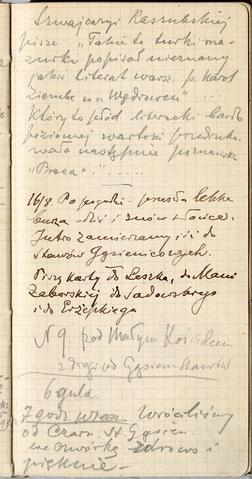 Szwajcaryi Kaszubskiej
pisze: „Takie to turki ma-
zurku popisał nieznany
jakiś literat warsz. p. Karol
Ziembe w „Wędrowcu”
Który to płód literacki bardzo
poziomej wartości przedruko-
wała następnie poznańska
„Praca”.....
16/8. Po pogodzie - przeszła lekka
burza - dziś i znów słońce.
Jutro zamierzamy iść do
stawów Gąsienicowych.
Piszę karty do Leszka, do Mani
Zaborskiej do Sadowskiego
i do Erzepkiego
N 9. pod Małym Kościelcem
z drogi od Gąsien. Stawów
6 gula.
7 godz wiecz. wróciliśmy
od Czarn. St. Gąsien.
we czwórkę zdrowo i
pięknie -